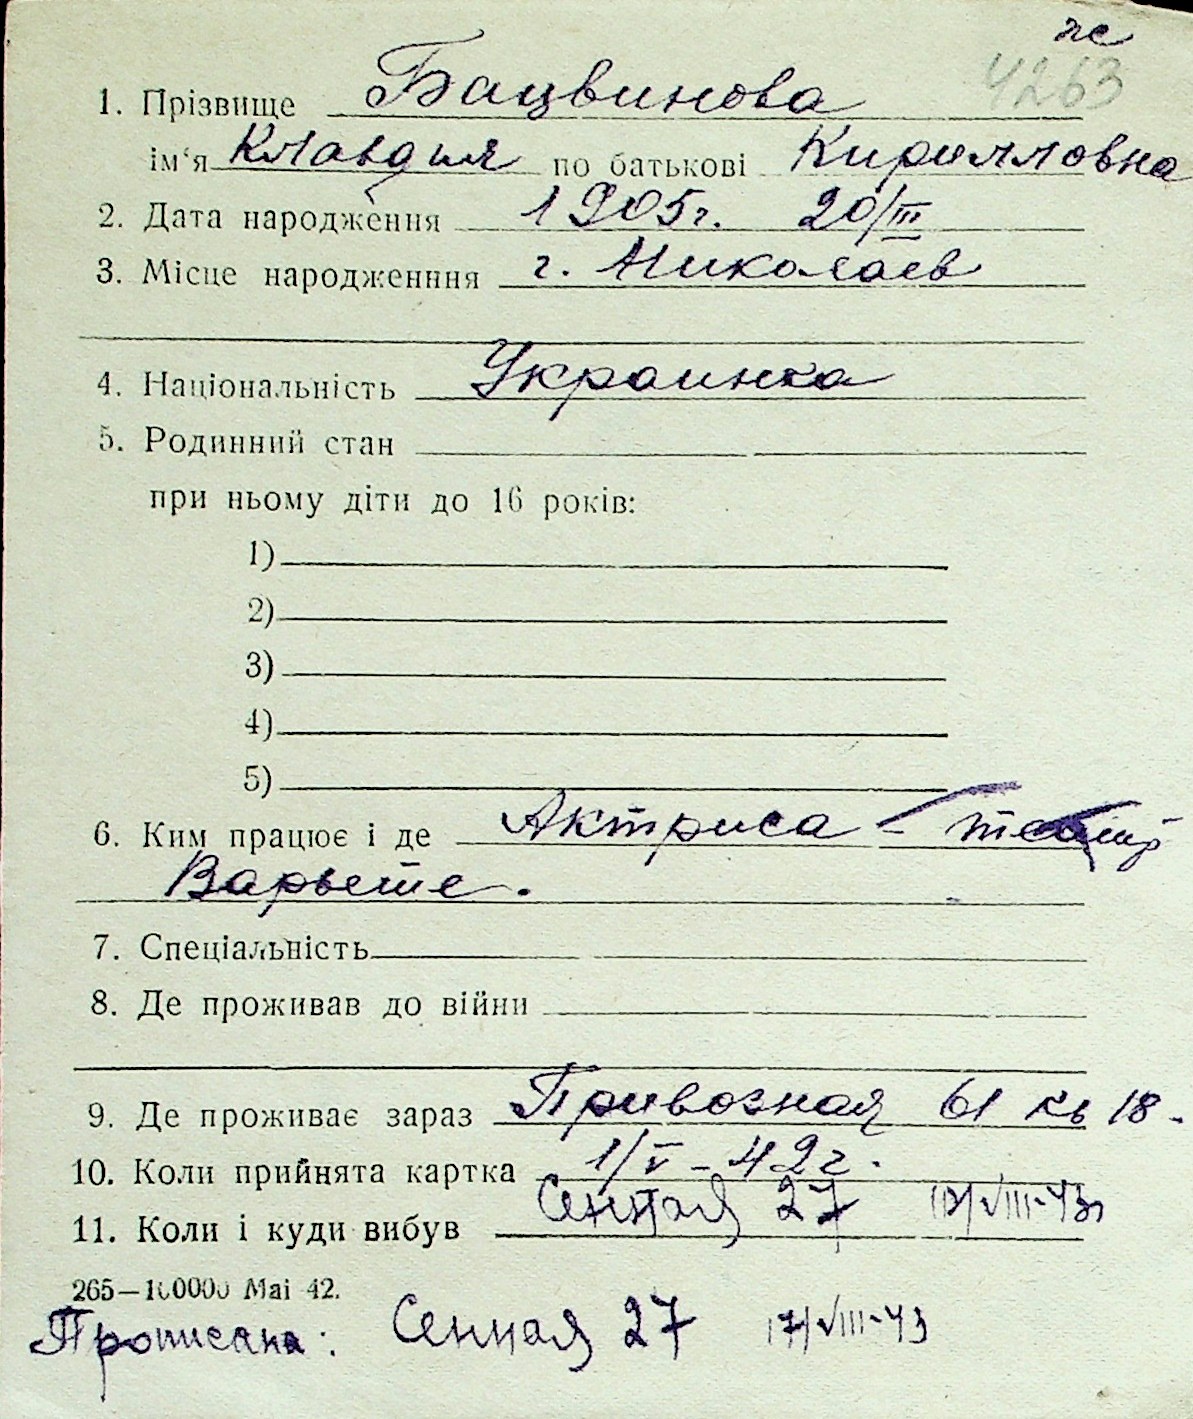 4263
1. Прізвище Бацвинова
ім‘я Клавдия по батькові Кирилловна
2. Дата народження 1905г. 20/III
3. Місце народженння г. Николаев
4. Національність Украинка
5. Родинний стан
при ньому діти до 16 років:
1)
2)
3)
4)
5)
6. Ким працює і де Актриса –
Варьете.
7. Спеціальність
8. Де проживав до війни
9. Де проживає зараз Привозная 61 кв 18.
10. Коли прийнята картка 1/V – 42г.
11. Коли і куди вибув Сенная 27 17/VIII-43г
265—100000 Mai 42.
Прописана: Сенная 27 17/VIII-43